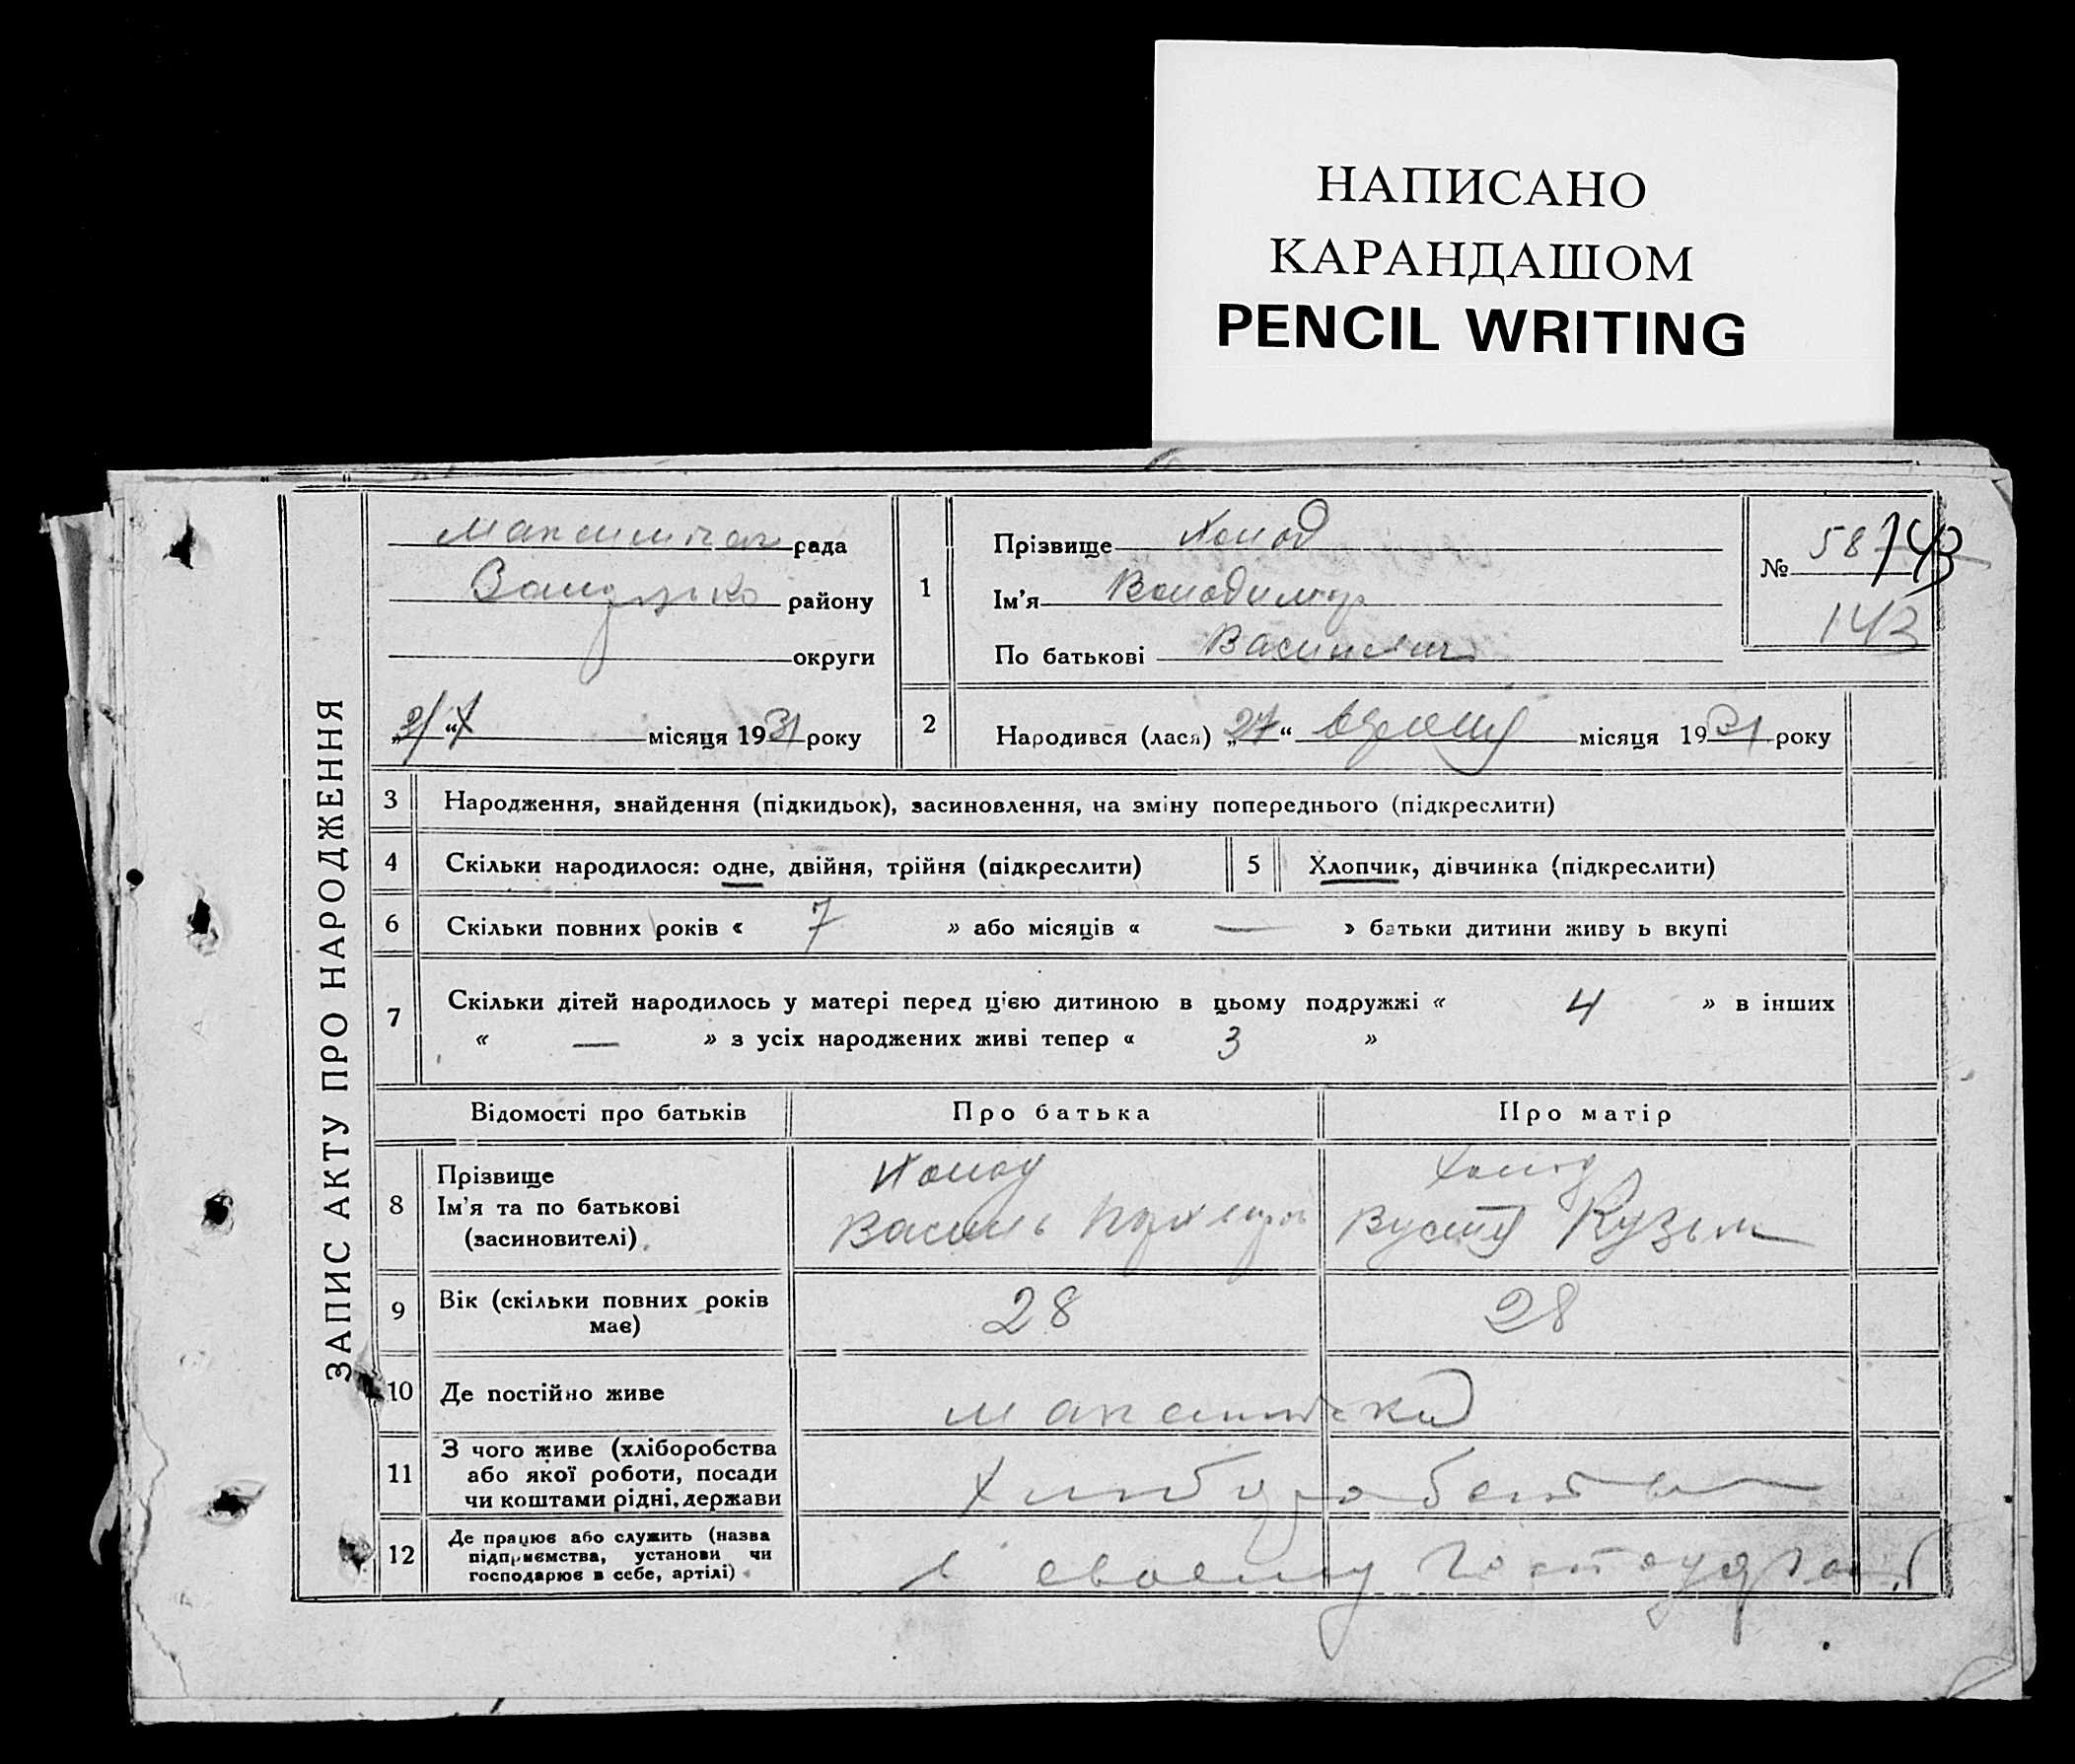 НАПИСАНО
КАРАНДАШОМ
PENCIL WRITING
ЗАПИС АКТУ ПРО НАРОДЖЕННЯ
рада
району
округи
„2/“ X місяця 1931 року
1
Прізвище Холод
Ім'я Володимир
По батькові Васильович
№ 58 143
143
2
Народився (лася) „27“ місяця 1931 року
3 Народження, знайдення (підкидьок), засиновлення, на зміну попереднього (підкреслити)
4 Скільки народилося: одне, двійня, трійня (підкреслити)
5 Хлопчик, дівчинка (підкреслити)
6 Скільки повних років « 7 » або місяців « — » батьки дитини живу ь вкупі
7 Скільки дітей народилось у матері перед цією дитиною в цьому подружжі « 4 » в інших
« — » з усіх народжених живі тепер « 3 »
Відомості про батьків Про батька Про матір
8 Прізвище Холод Холод
Ім'я та по батькові Василь Кузьм
(засиновителі)
9 Вік (скільки повних років має) 28 28
10 Де постійно живе
11 З чого живе (хліборобства
або якої роботи, посади
чи коштами рідні, держави
12 Де працює або служить (назва
підприємства, установи чи
господарює в себе, артілі)
в своему